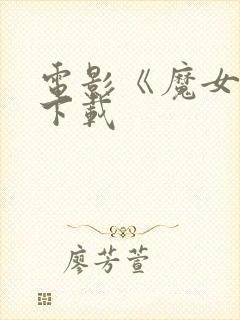 電影《魔女
下載
廖芳萱